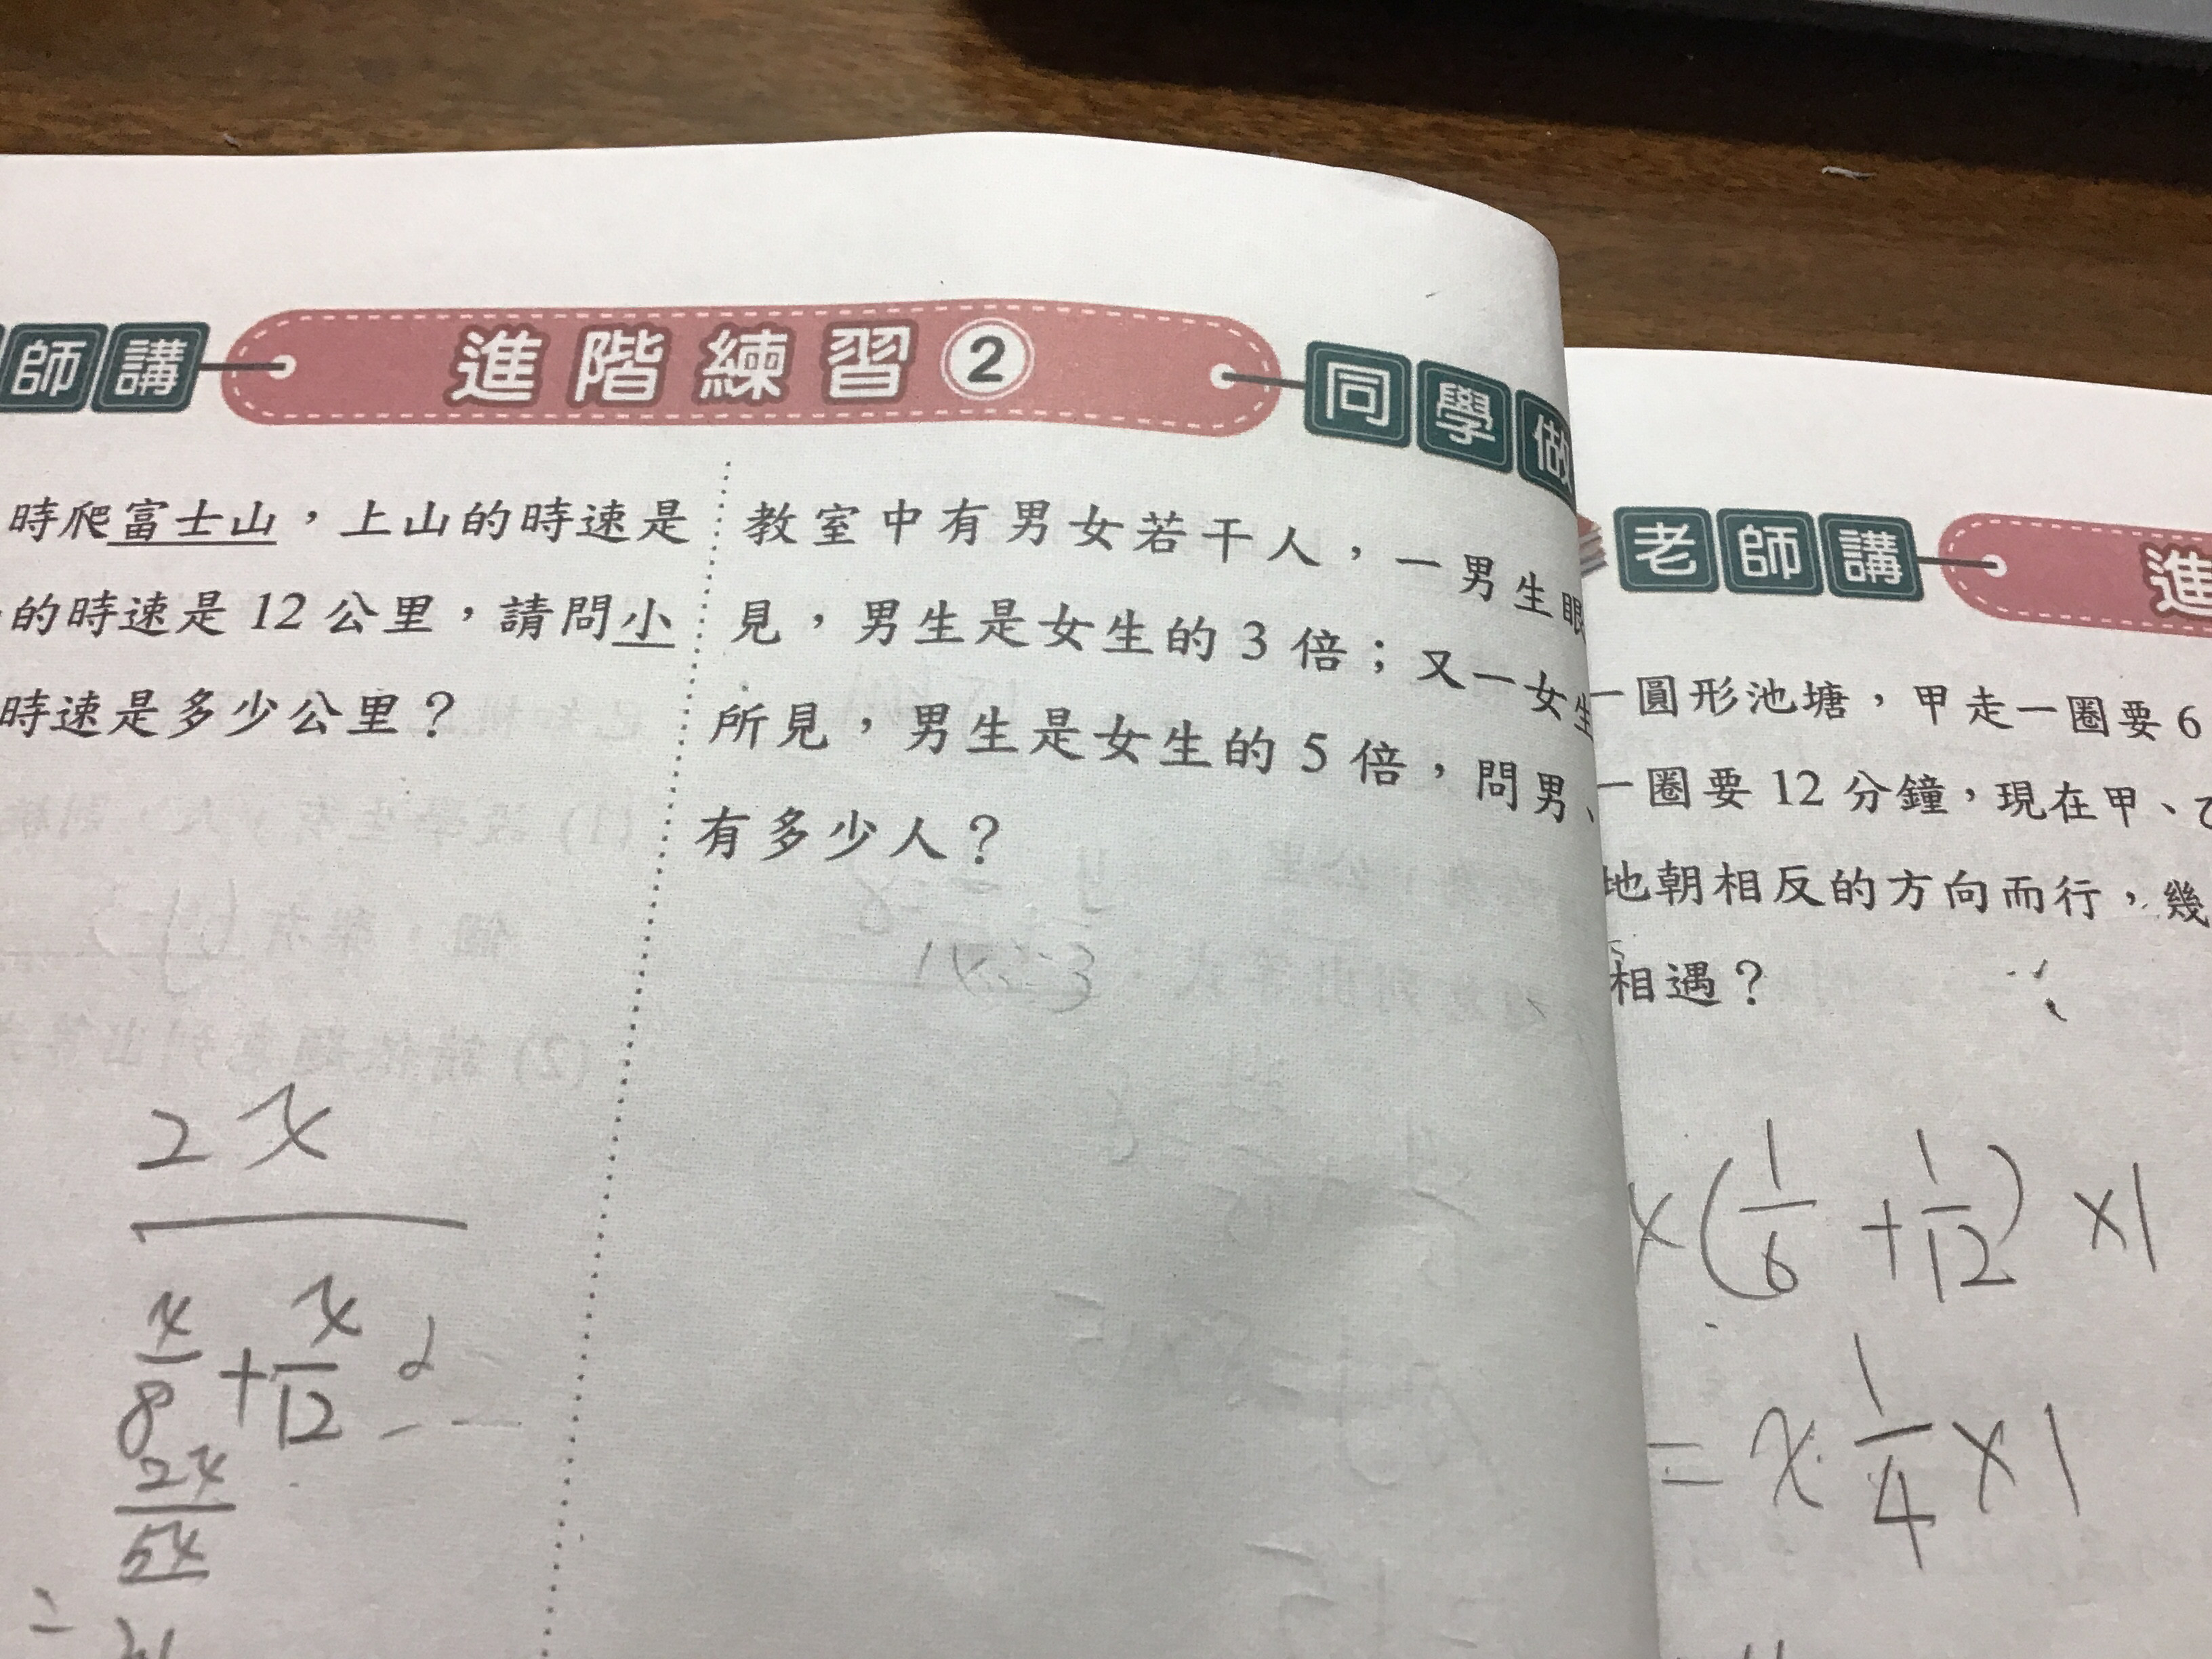 師講
進階練習②
同學做
時爬富士山，上山的時速是
的時速是12公里，請問小
時速是多少公里？
2x
x/8 + x/12
2x
5x
=
教室中有男女若干人，一男生眼
見，男生是女生的3倍；又一女生
所見，男生是女生的5倍，問男、
有多少人？
老師講
進
一圓形池塘，甲走一圈要6
一圈要12分鐘，現在甲、乙
地朝相反的方向而行，幾
相遇？
x(1/6 + 1/12) x1
= x·1/4 x1